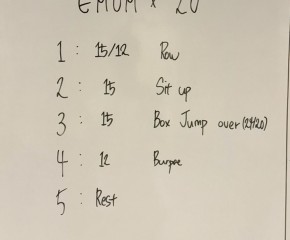 EMOM x 20
1 : 15/12 Row
2 : 15 Sit up
3 : 15 Box Jump over (24/20)
4 : 12 Burpee
5 : Rest